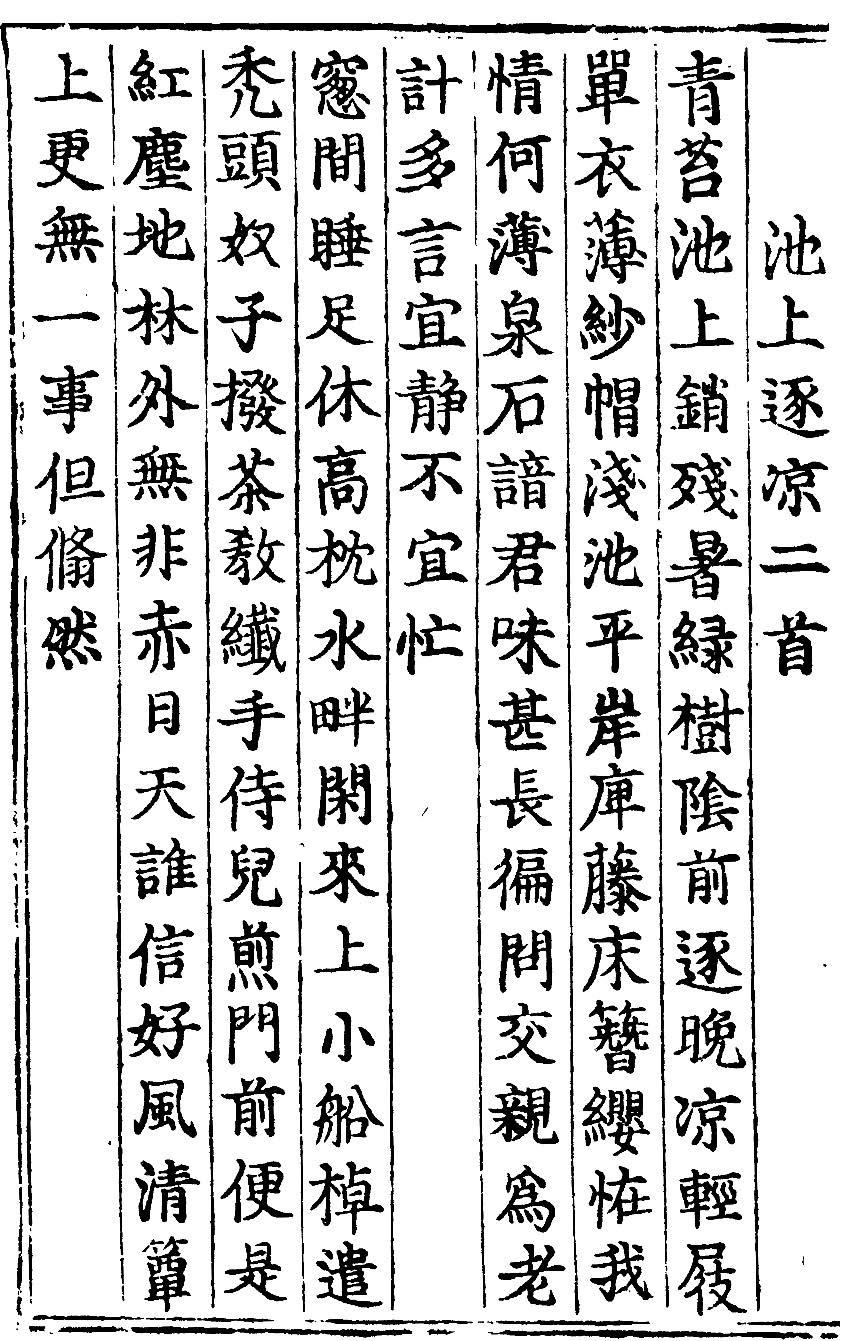 池上逐凉二首
青苔池上銷殘暑緑樹陰前逐晚凉輕屐
單衣薄紗帽淺池平岸庳藤床簪纓恠我
情何薄泉石諳君味甚長徧問交親爲老
計多言宜静不宜忙
窻間睡足休高枕水畔閑來上小船棹遣
秃頭奴子撥茶教纖手侍兒煎門前便是
紅塵地林外無非赤日天誰信好風清簟
上更無一事但翛然